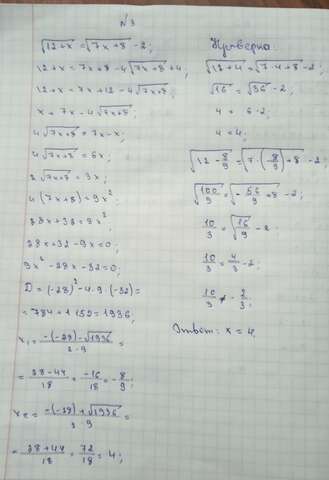 N3
√12+x = √7x+8 - 2;
12+x = 7x+8 - 4√7x+8 + 4;
12+x = 7x+12 - 4√7x+8;
x = 7x - 4√7x+8;
4√7x+8 = 7x-x;
4√7x+8 = 6x;
2√7x+8 = 3x;
4(7x+8) = 9x²
28x+32 = 9x²;
28x+32-9x = 0;
9x² - 28x - 32 = 0;
D = (-28)² - 4·9·(-32) =
= 784 + 1152 = 1936;
x₁ = -(-28) - √1936 / 2·9 =
= 28-44 / 18 = -16 / 18 = -8/9;
x₂ = -(-28) + √1936 / 2·9 =
= 28+44 / 18 = 72 / 18 = 4;
Проверка
√12+4 = √7·4+8 - 2;
√16 = √36 - 2;
4 = 6-2;
4 = 4.
√12 - 8/9 = √7·(-8/9)+8 - 2;
√100/9 = √-56/9 + 8 - 2;
10/3 = √16/9 - 2;
10/3 = 4/3 - 2;
10/3 ≠ -2/3;
Ответ: x = 4.